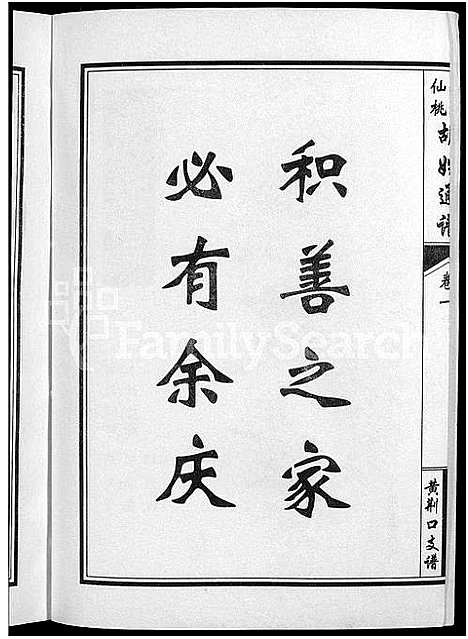 积善之家
必有余庆
仙桃胡姓通谱
卷一
黄荆口支谱
FamilySearch